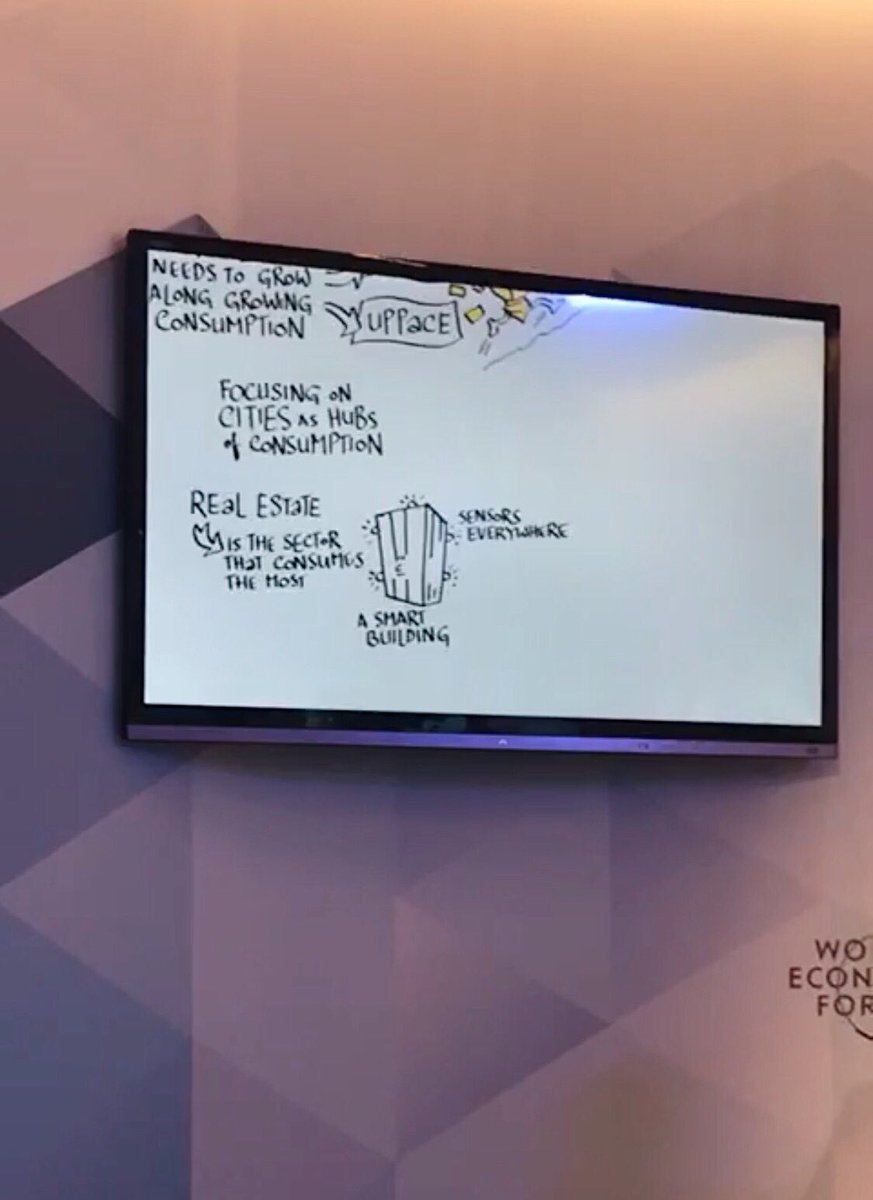 NEEDS TO GROW
ALONG GROWING
CONSUMPTION
UPPaCE
FOCUSING ON
CITIES AS HUBS
of CONSUMPTION
REaL ESTaTE
IS THE SECTOR
THaT CONSUMES
THE MOST
SENSORS
EVERYWHERE
A SMART
BUILDING
WO
ECON
FOR